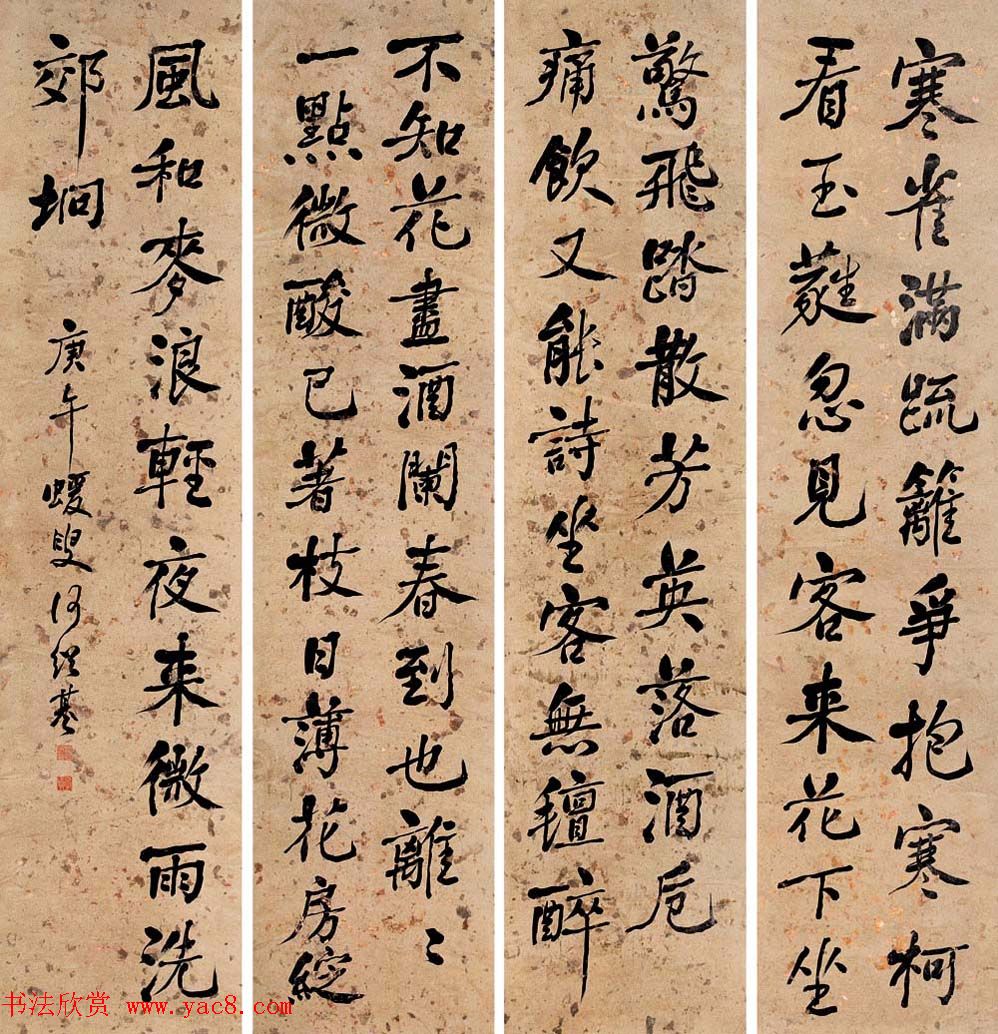 寒雀滿疏籬爭抱寒柯
看玉蕤忽見客来花下坐
驚飛踏散芳英落酒卮
痛飲又能詩坐客無氊醉
不知花盡酒闌春到也離〻
一點微酸已著枝日薄花房綻
風和麥浪輕夜来微雨洗
郊坰 庚午蝯叟何紹基
书法欣赏 www.yac8.com